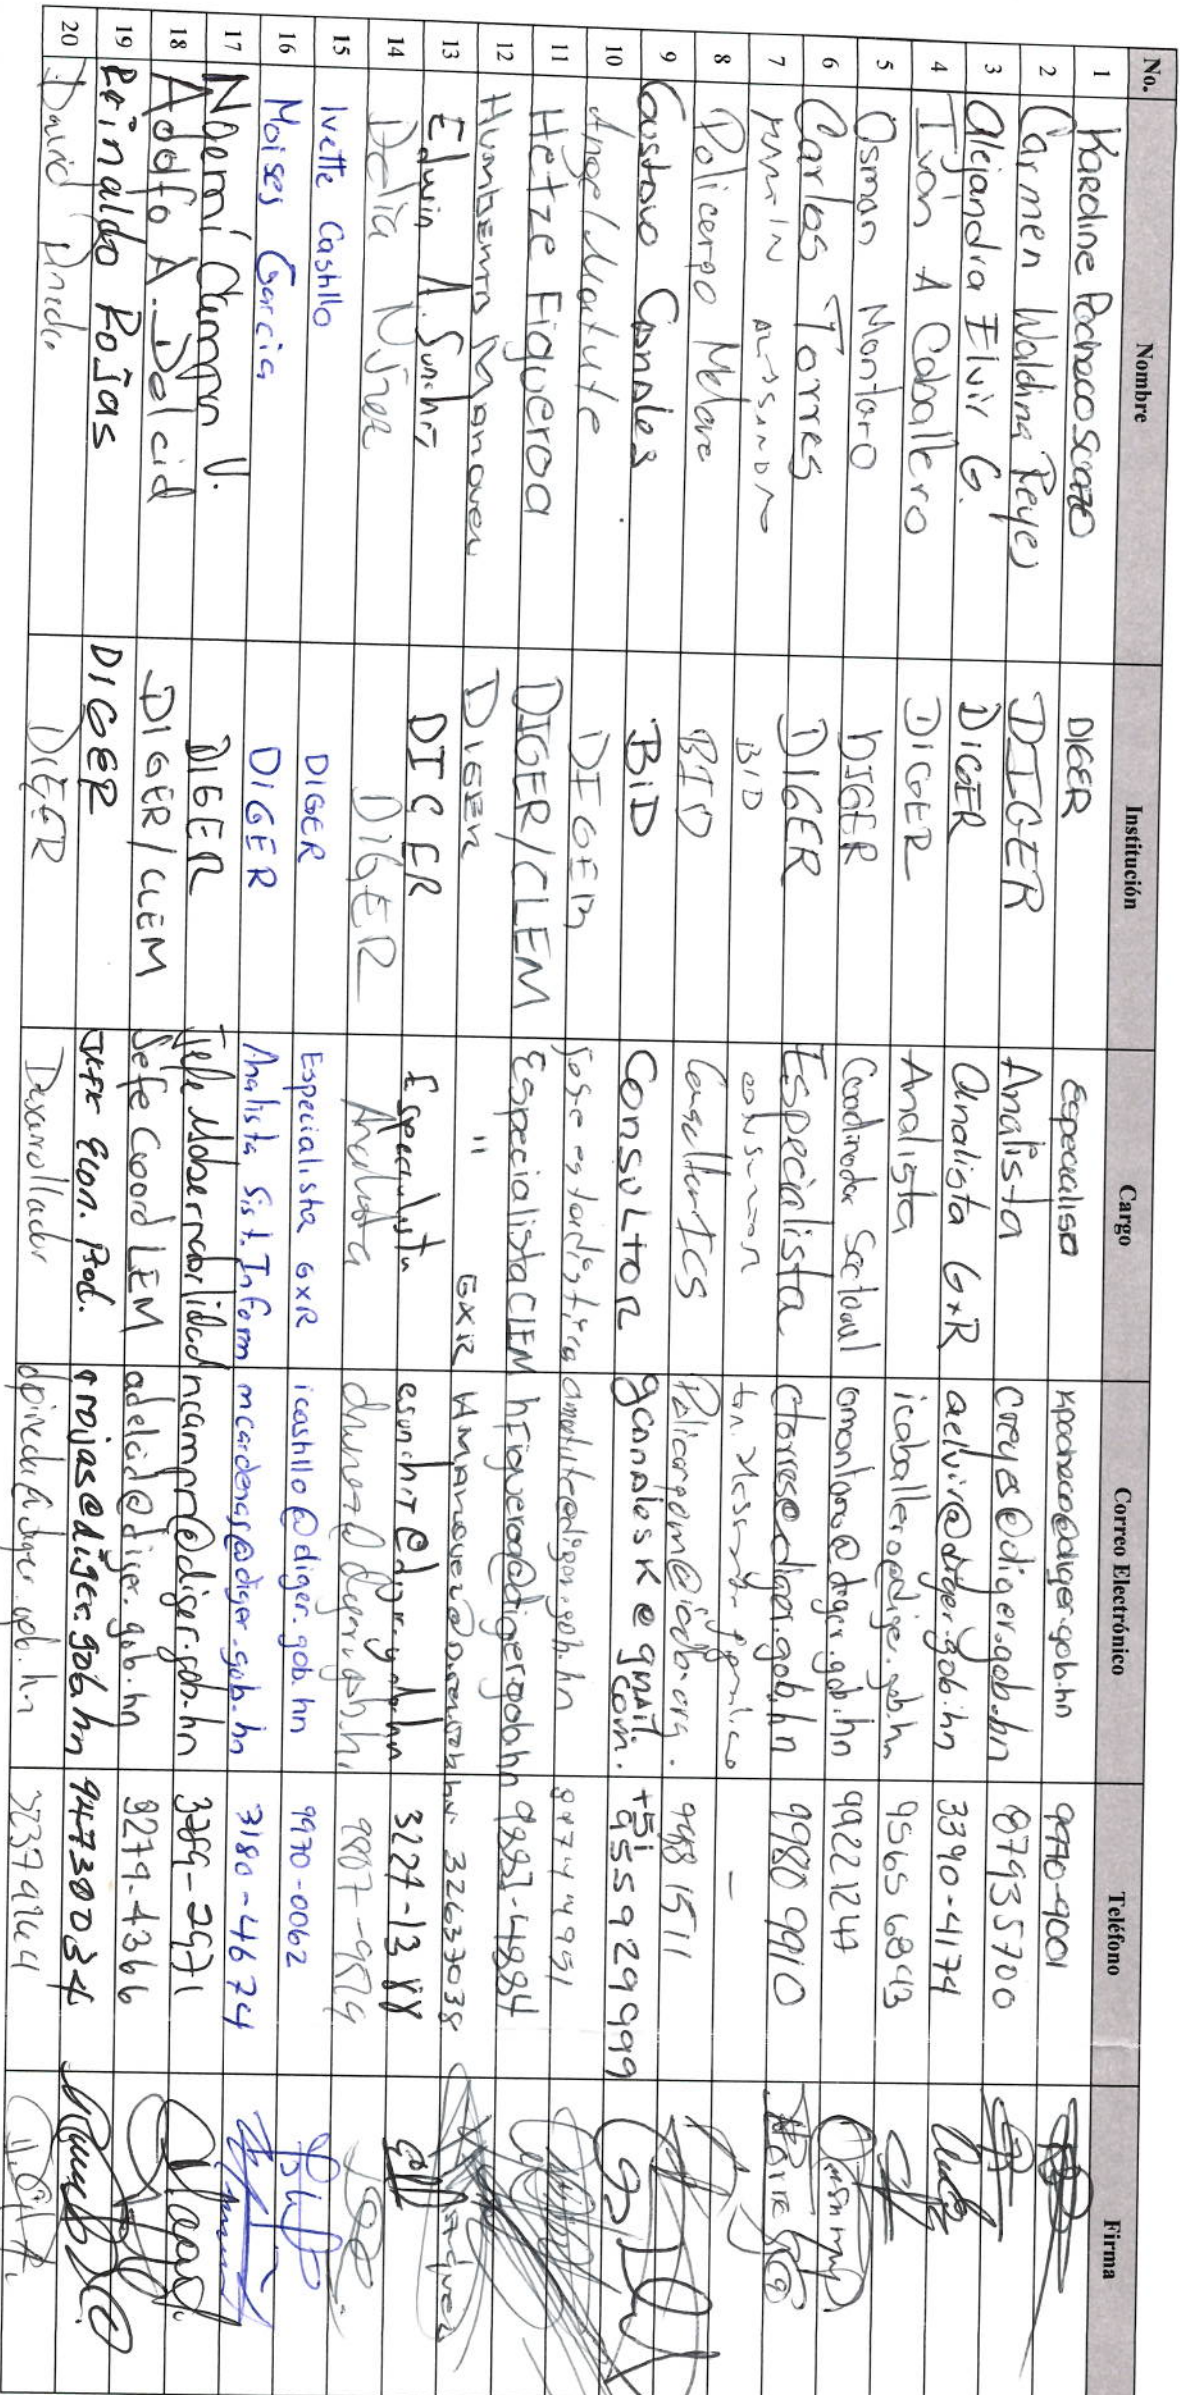 No. Nombre Institución Cargo Correo Electrónico Teléfono Firma
1 Karoline Pacheco Scozzo DIGER Especialisa kpacheco@diger.gob.hn 9970-9001
2 Carmen Waldina Reyes DIGER Analista creyes@diger.gob.hn 87935700
3 Alejandra Elvir G. DIGER analista GxR aelvir@diger.gob.hn 3390-4174
4 Ivón A Caballero DIGER Analista icaballero@diger.gob.hn 9565 6843
5 Osman Montoro DIGER Coordinador Sectorial omontoro@diger.gob.hn 99221247
6 Carlos Torres DIGER Especialista ctorres@diger.gob.hn 9980 9910
7 BID
8 Policarpo Melara BID Consultor ICS Policarpom@iadb.org. 9988 1511
9 Gustavo Canales BID Consultor gcanalesk@gmail.com. +51 955929999
10 Angel Matute DIGER Jose estadistica amatute@diger.gob.hn 87744991
11 Hetze Figueroa DIGER/CLEM Especialista CLEM hfigueroa@diger.gob.hn 9997-4884
12 Humberto DIGER " GXR 32637038
13 Edwin A. Sunchit DIGER Especialista esunchit@diger.gob.hn 3227-1388
14 Delia DIGER Analista 9807-9579
15 Ivette Castillo DIGER Especialista GxR icastillo@diger.gob.hn 9970-0062
16 Moises Garcia DIGER Analista Sist. Inform mcardenas@diger.gob.hn 3180-4674
17 Noemí Campo V. DIGER Jefe Mdsernabilidad ncampo@diger.gob.hn 3789-2971
18 Adolfo A. Delcid DIGER/CLEM Jefe Coord LEM adelcid@diger.gob.hn 9279-4366
19 Reinaldo Rojas DIGER Jefe Econ. Prod. rrojas@diger.gob.hn 94730034
20 David Pineda DIGER Desarrollador dpineda@diger.gob.hn